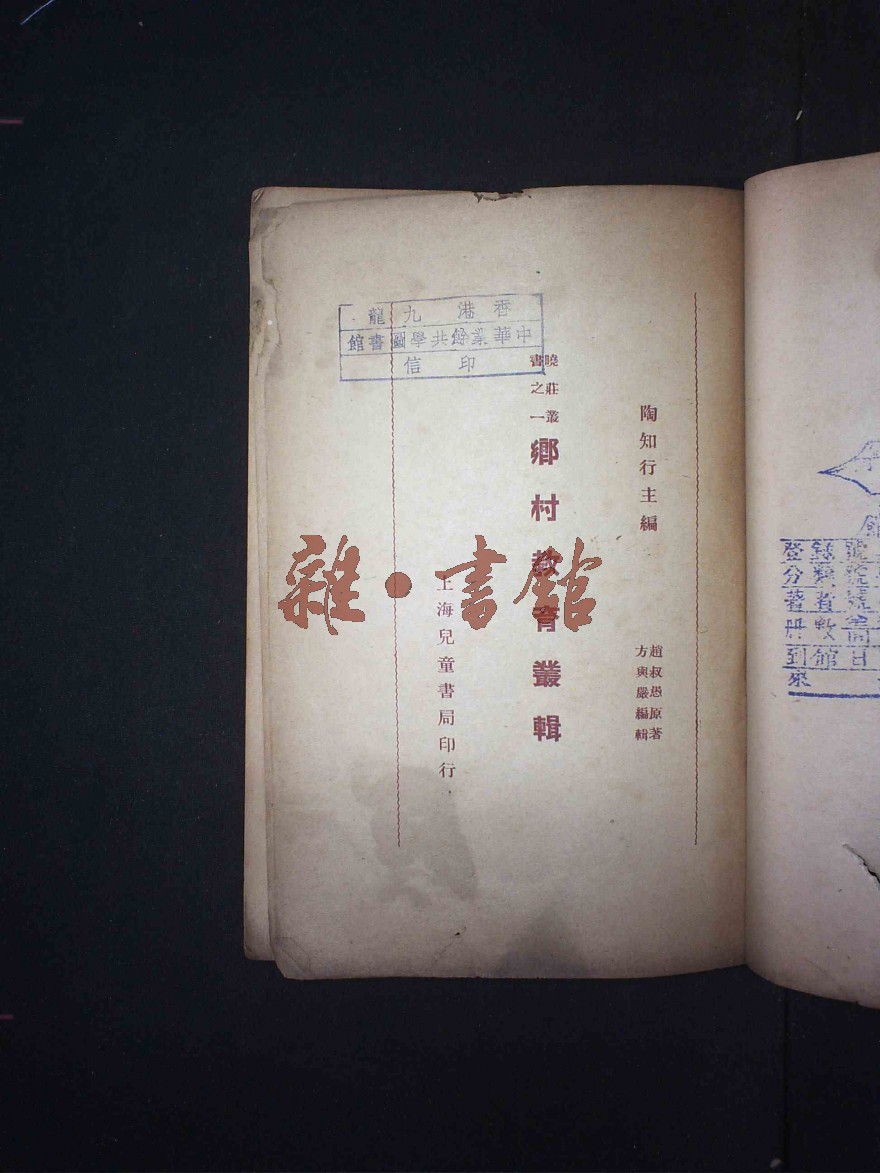 陶知行主編
趙叔愚原著
方與嚴編輯
曉莊叢
書之一
鄉村教育叢輯
上海兒童書局印行
香港九龍
中華業餘共學圖書館
印信
雜·書館
登錄號
分類號
著者號
冊數
到館日
來